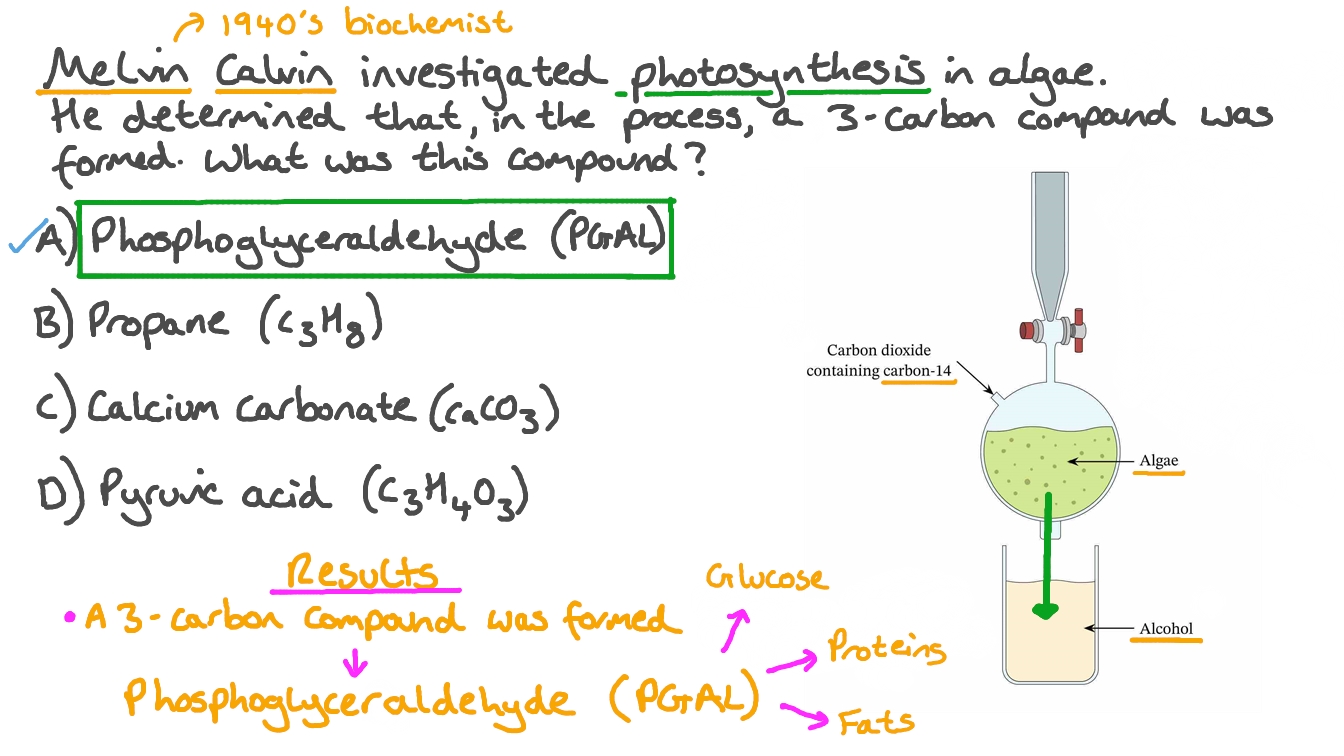 1940's biochemist
Melvin Calvin investigated photosynthesis in algae.
He determined that, in the process, a 3-carbon compound was
formed. What was this compound?
A) Phosphoglyceraldehyde (PGAL)
B) Propane (C₃H₈)
C) Calcium carbonate (CaCO₃)
D) Pyruvic acid (C₃H₄O₃)
Carbon dioxide
containing carbon-14
Algae
Alcohol
Results
• A 3-carbon compound was formed
Phosphoglyceraldehyde (PGAL)
Glucose
Proteins
Fats